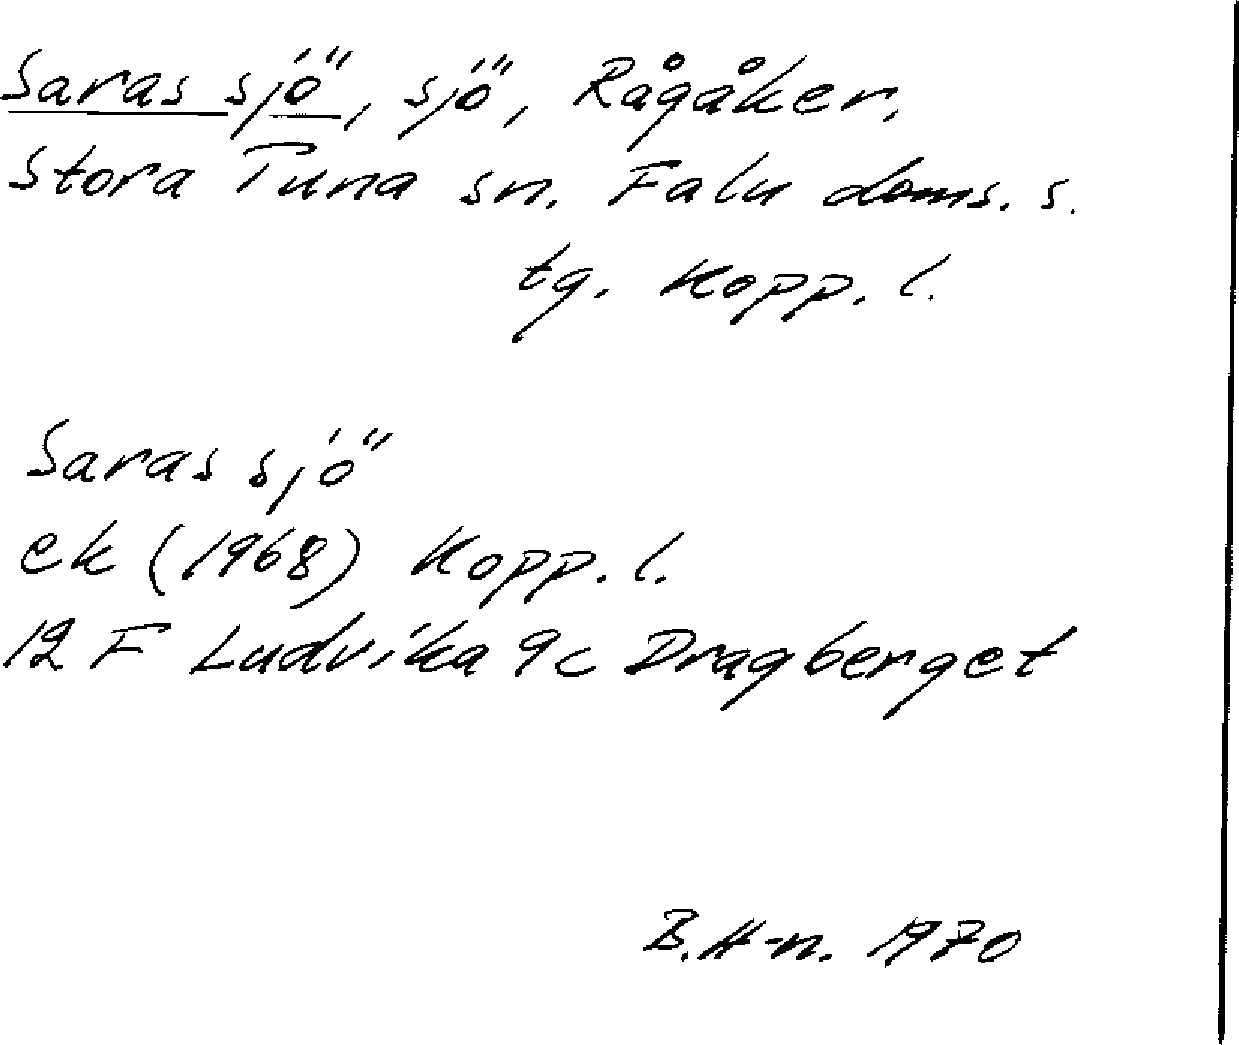 Saras sjö, sjö, Rågåker,
Stora Tuna sn. Falu doms. s.
tg. Kopp. l.
Saras sjö
ek (1968) Kopp. l.
12 F Ludvika 9c Dragberget
B.H-n. 1970